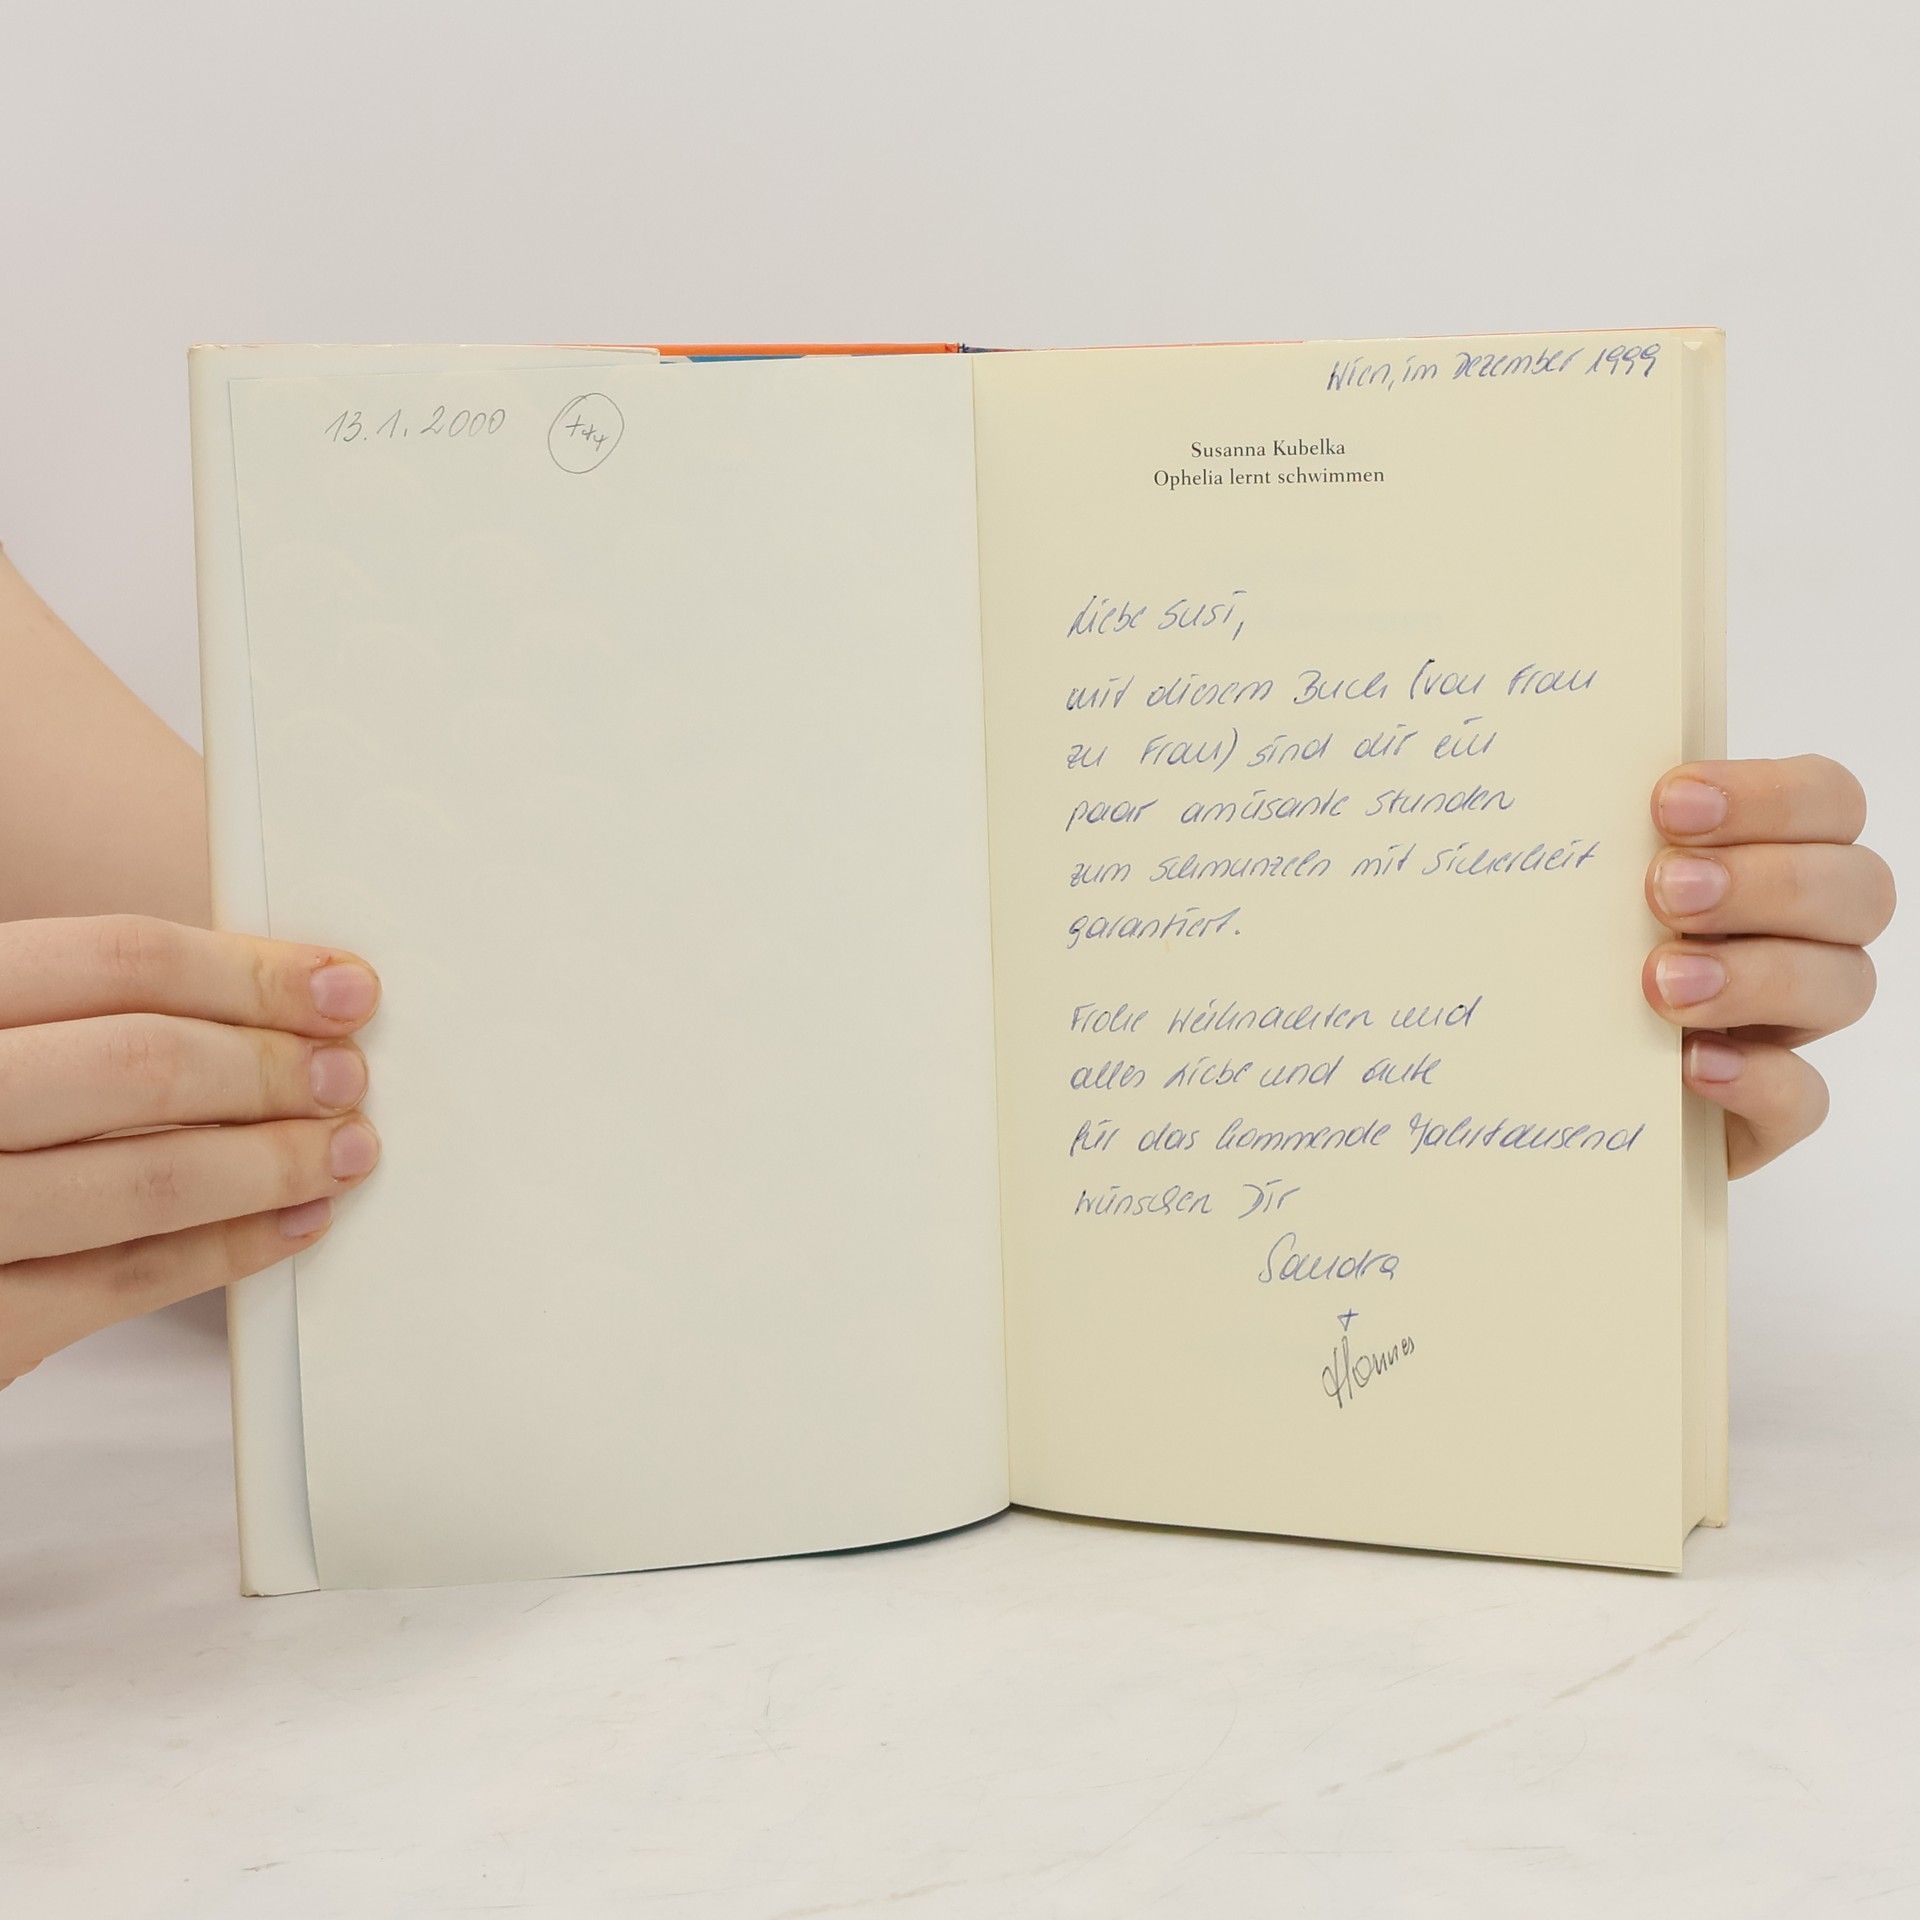 13.1.2000 +++
Wien, im Dezember 1999
Susanna Kubelka
Ophelia lernt schwimmen
Liebe Susi,
mit diesem Buch (von Frau
zu Frau) sind dir ein
paar amüsante Stunden
zum Schmunzeln mit Sicherheit
garantiert.
Frohe Weihnachten und
alles Liebe und Gute
für das kommende Jahrtausend
wünschen Dir
Sandra
+
Hannes